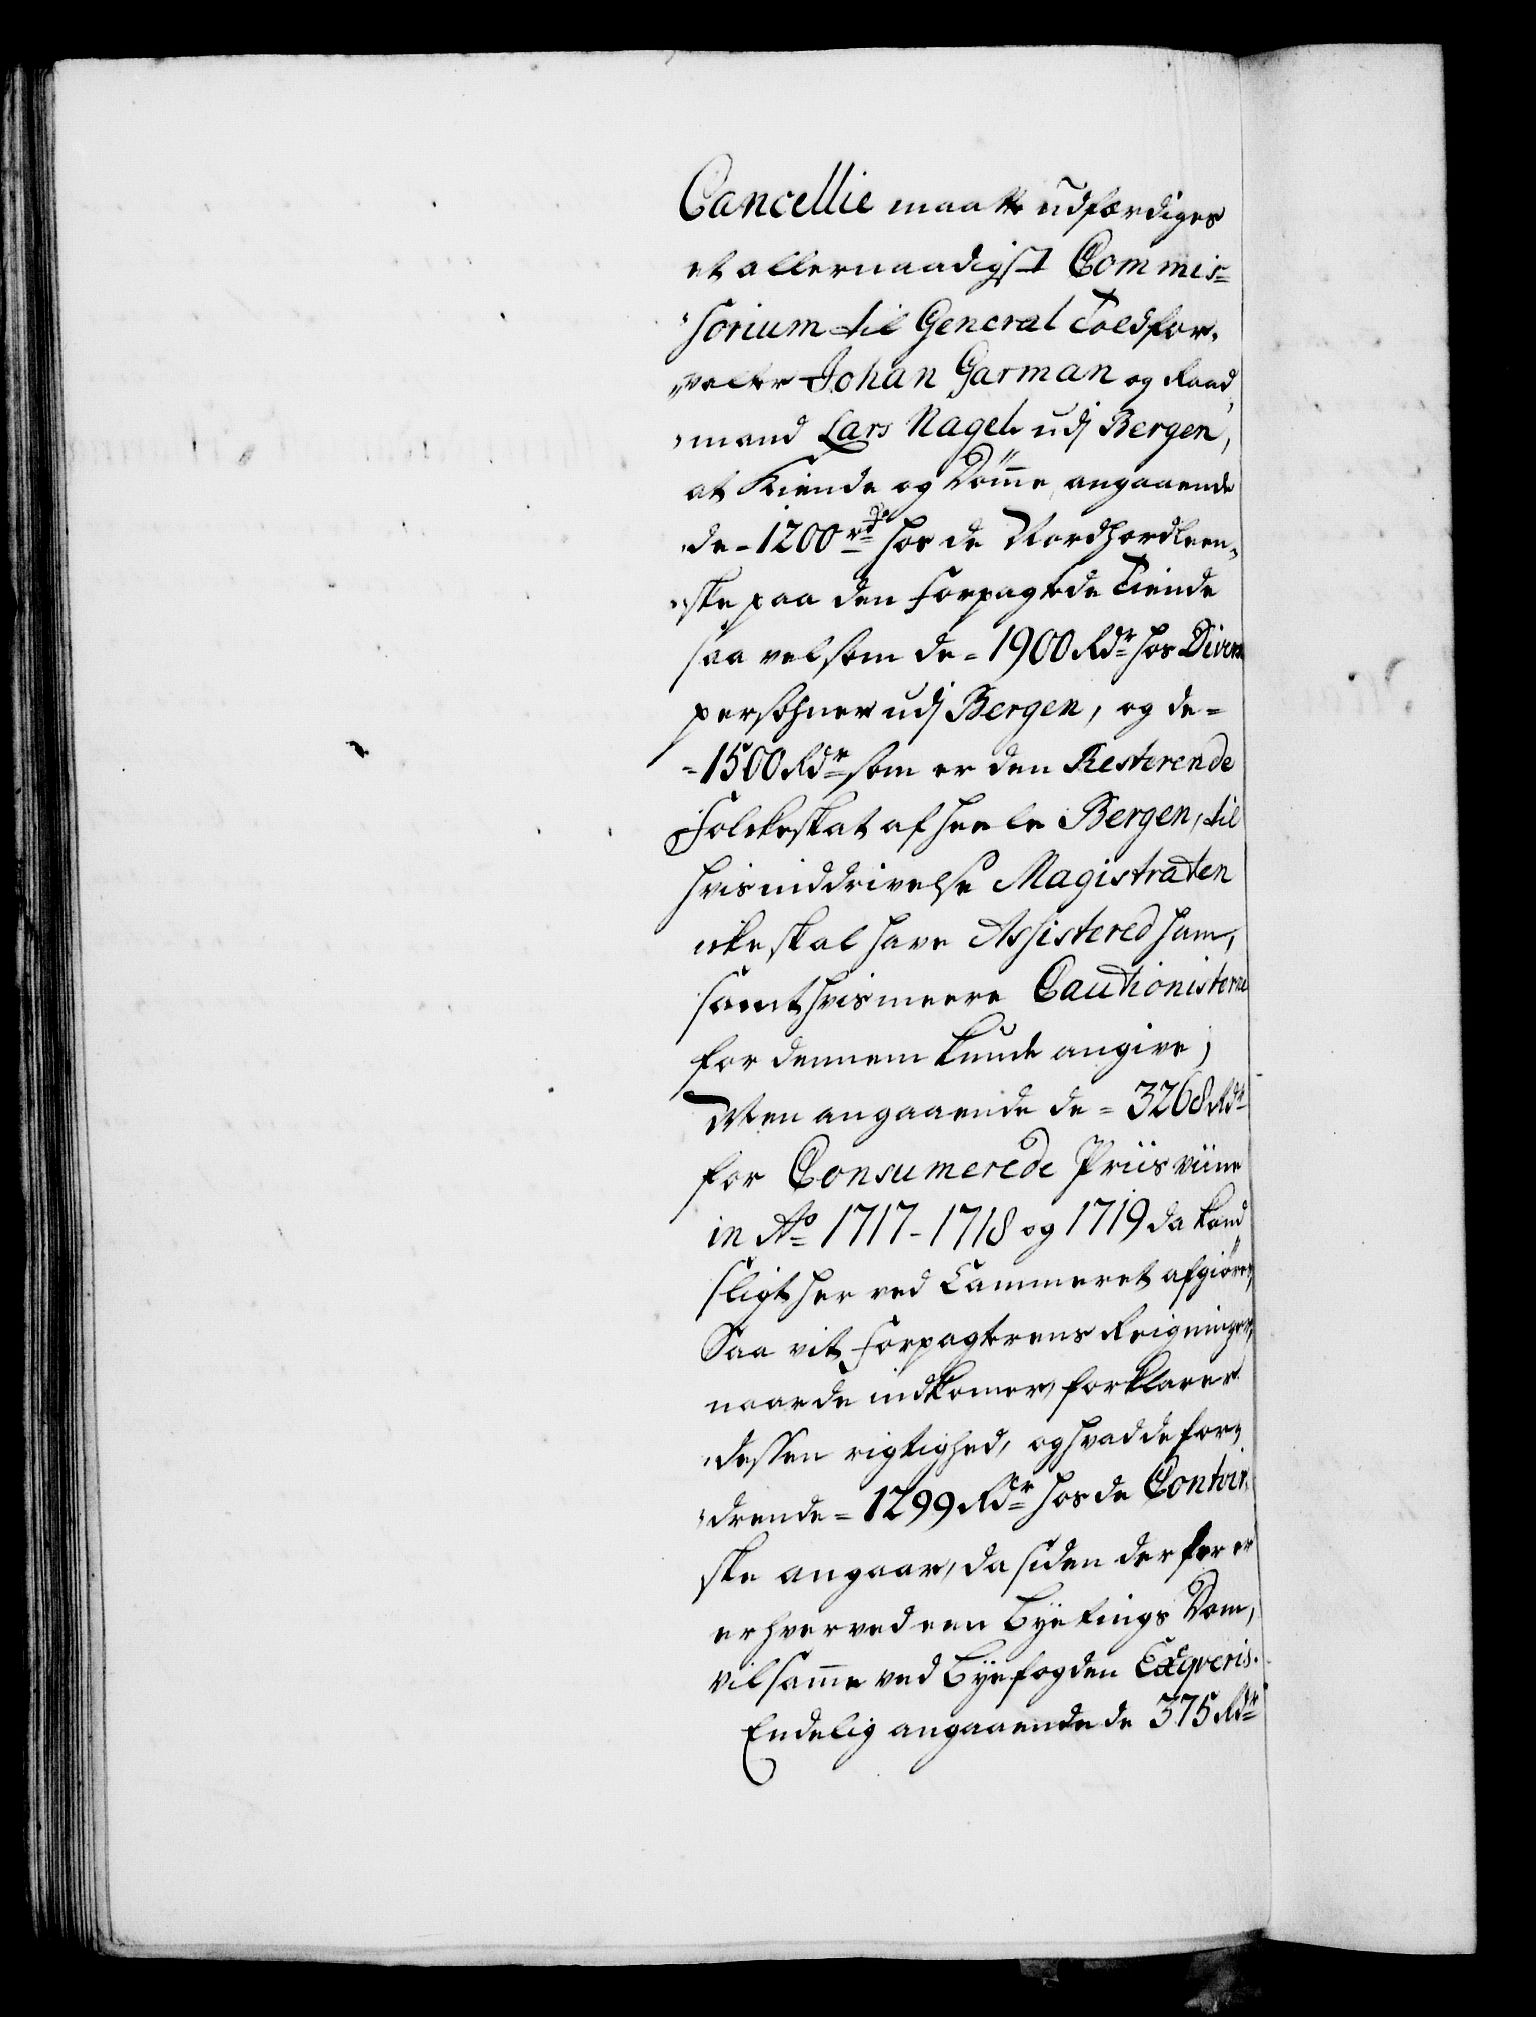 Cancellie maatte udfærdiges
et allernaadigst Commis=
sorium til General Toldfor,
valter Johan Garman og Raad,
mand Lars Nagel udj Bergen,
at Kiende og Dømme angaaende
de = 1200 rdr hos de Nordhordleen,
ske paa den forpagtede Tiende
saa velsom de = 1900 Rdr hos Diverse
persohner udj Bergen, og de =
= 1500 Rdr som er den Resterende
Folckeskat af heele Bergen, til
hvis inddrivelse Magistraten
icke skal have Assistered ham,
samt hvis meere Cautionisterne
for dennem kunde angive;
Men angaaende de = 3268 Rdr
for Consumerede Priis viine
in Ao 1717 - 1718 og 1719 da kand
sligt her ved Cammeret afgiøres,
Saa vit forpagterens Reigninger,
naar de indkomer, forklarer
dessen rigtighed, og hvad de for,
drende = 1299 Rdr hos de Contoir,
ske angaar, da siden derfor er
erhvervedeen Byetings Dom,
vil samme ved Byefogden Exeqveris.
Endelig angaaende de 375 Rdr